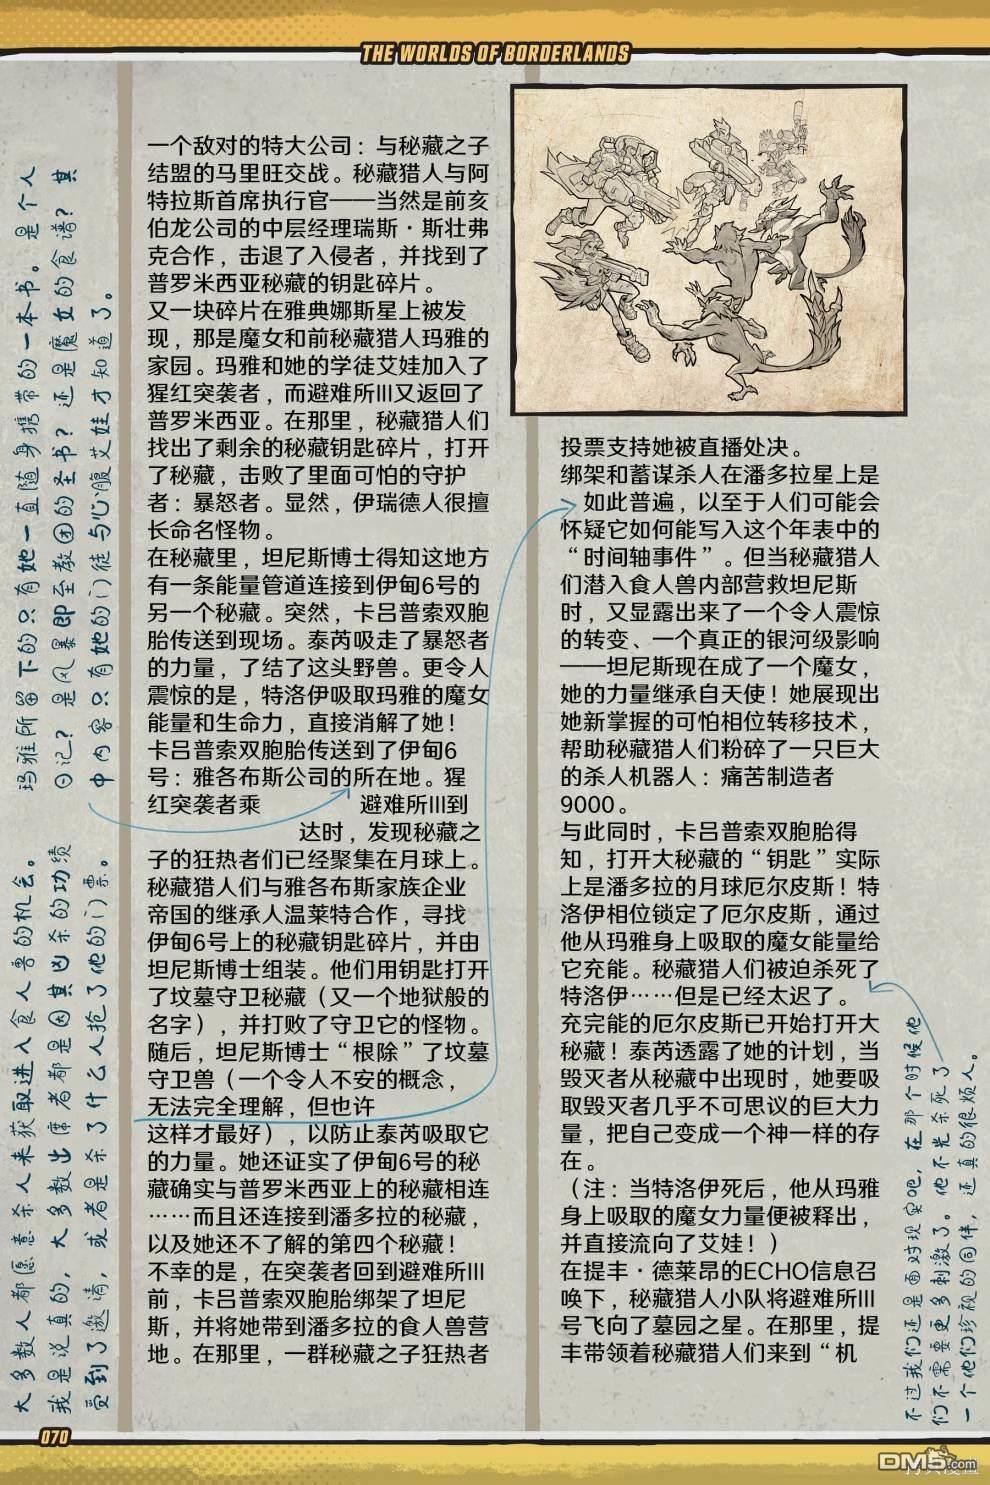 THE WORLDS OF BORDERLANDS
一个敌对的特大公司：与秘藏之子
结盟的马里旺交战。秘藏猎人与阿
特拉斯首席执行官——当然是前亥
伯龙公司的中层经理瑞斯·斯壮弗
克合作，击退了入侵者，并找到了
普罗米西亚秘藏的钥匙碎片。
又一块碎片在雅典娜斯星上被发
现，那是魔女和前秘藏猎人玛雅的
家园。玛雅和她的学徒艾娃加入了
猩红突袭者，而避难所III又返回了
普罗米西亚。在那里，秘藏猎人们
找出了剩余的秘藏钥匙碎片，打开
了秘藏，击败了里面可怕的守护
者：暴怒者。显然，伊瑞德人很擅
长命名怪物。
在秘藏里，坦尼斯博士得知这地方
有一条能量管道连接到伊甸6号的
另一个秘藏。突然，卡吕普索双胞
胎传送到现场。泰芮吸走了暴怒者
的力量，了结了这头野兽。更令人
震惊的是，特洛伊吸取玛雅的魔女
能量和生命力，直接消解了她！
卡吕普索双胞胎传送到了伊甸6
号：雅各布斯公司的所在地。猩
红突袭者乘 避难所III到
达时，发现秘藏之
子的狂热者们已经聚集在月球上。
秘藏猎人们与雅各布斯家族企业
帝国的继承人温莱特合作，寻找
伊甸6号上的秘藏钥匙碎片，并由
坦尼斯博士组装。他们用钥匙打开
了坟墓守卫秘藏（又一个地狱般的
名字），并打败了守卫它的怪物。
随后，坦尼斯博士“根除”了坟墓
守卫兽（一个令人不安的概念，
无法完全理解，但也许
这样才最好），以防止泰芮吸取它
的力量。她还证实了伊甸6号的秘
藏确实与普罗米西亚上的秘藏相连
……而且还连接到潘多拉的秘藏，
以及她还不了解的第四个秘藏！
不幸的是，在突袭者回到避难所III
前，卡吕普索双胞胎绑架了坦尼
斯，并将她带到潘多拉的食人兽营
地。在那里，一群秘藏之子狂热者
投票支持她被直播处决。
绑架和蓄谋杀人在潘多拉星上是
如此普遍，以至于人们可能会
怀疑它如何能写入这个年表中的
“时间轴事件”。但当秘藏猎人
们潜入食人兽内部营救坦尼斯
时，又显露出来了一个令人震惊
的转变、一个真正的银河级影响
——坦尼斯现在成了一个魔女，
她的力量继承自天使！她展现出
她新掌握的可怕相位转移技术，
帮助秘藏猎人们粉碎了一只巨大
的杀人机器人：痛苦制造者
9000。
与此同时，卡吕普索双胞胎得
知，打开大秘藏的“钥匙”实际
上是潘多拉的月球厄尔皮斯！特
洛伊相位锁定了厄尔皮斯，通过
他从玛雅身上吸取的魔女能量给
它充能。秘藏猎人们被迫杀死了
特洛伊……但是已经太迟了。
充完能的厄尔皮斯已开始打开大
秘藏！泰芮透露了她的计划，当
毁灭者从秘藏中出现时，她要吸
取毁灭者几乎不可思议的巨大力
量，把自己变成一个神一样的存
在。
（注：当特洛伊死后，他从玛雅
身上吸取的魔女力量便被释出，
并直接流向了艾娃！）
在提丰·德莱昂的ECHO信息召
唤下，秘藏猎人小队将避难所III
号飞向了墓园之星。在那里，提
丰带领着秘藏猎人们来到“机
玛雅所留下的只有她一直随身携带的一本书。是个人
日记？是风暴即至教团的圣书？还是魔女的食谱？其
中内容只有她的门徒与心腹艾娃才知道了。
大多数人都愿意杀人来获取进入食人兽的机会。
我是说真的，大多数出席者都是因其凶杀的功绩
受到了邀请，或者是杀了什么人抢了他的门票。
不过我们还是面对现实吧，在那个时候他
们不需要更多刺激了。他不光杀死了
一个他们珍视的同伴，还真的很烦人。
070
DM5.com